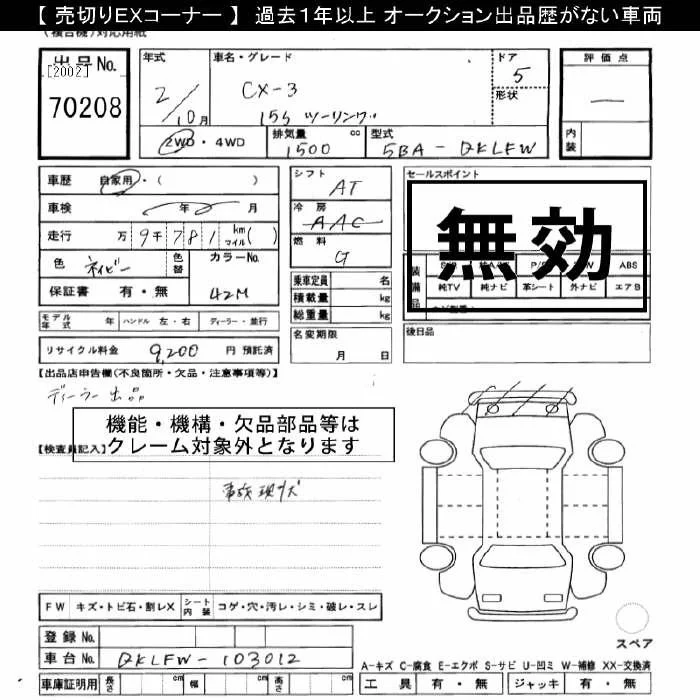 【 売切りEXコーナー 】 過去1年以上 オークション出品歴がない車両
(複合機)対応用紙
出品No.
[2002]
70208
年式
2/10月
車名・グレード
CX-3
15S ツーリング
ドア
5
形状
評価点
―
内装
2WD・4WD
排気量 1500 cc
型式 5BA-DKLFW
車歴 自家用・( )
車検 年 月
走行 万 9千781 km マイル( )
色 ネイビー
色替
カラーNo. 42M
保証書 有・無
シフト AT
冷房 AAC
燃料 G
乗車定員 名
積載量 kg
総重量 kg
セールスポイント
無効
装備品
ABS
純TV 純ナビ 革シート 外ナビ エアB
モデル年式 年 ハンドル 左・右 ディーラー・並行
名変期限
月 日
後日品
リサイクル料金 9,200 円 預託済
【出品店申告欄(不良箇所・欠品・注意事項等)】
ディーラー出品
機能・機構・欠品部品等は
クレーム対象外となります
【検査員記入】
事故現状
FW キズ・トビ石・割レX シート内装 コゲ・穴・汚レ・シミ・破レ・スレ
登録No.
車台No. DKLFW-103012
スペア
A-キズ C-腐食 E-エクボ S-サビ U-凹ミ W-補修 XX-交換済
車庫証明用 長さ cm 幅 cm 高さ cm
工具 有・無 ジャッキ 有・無